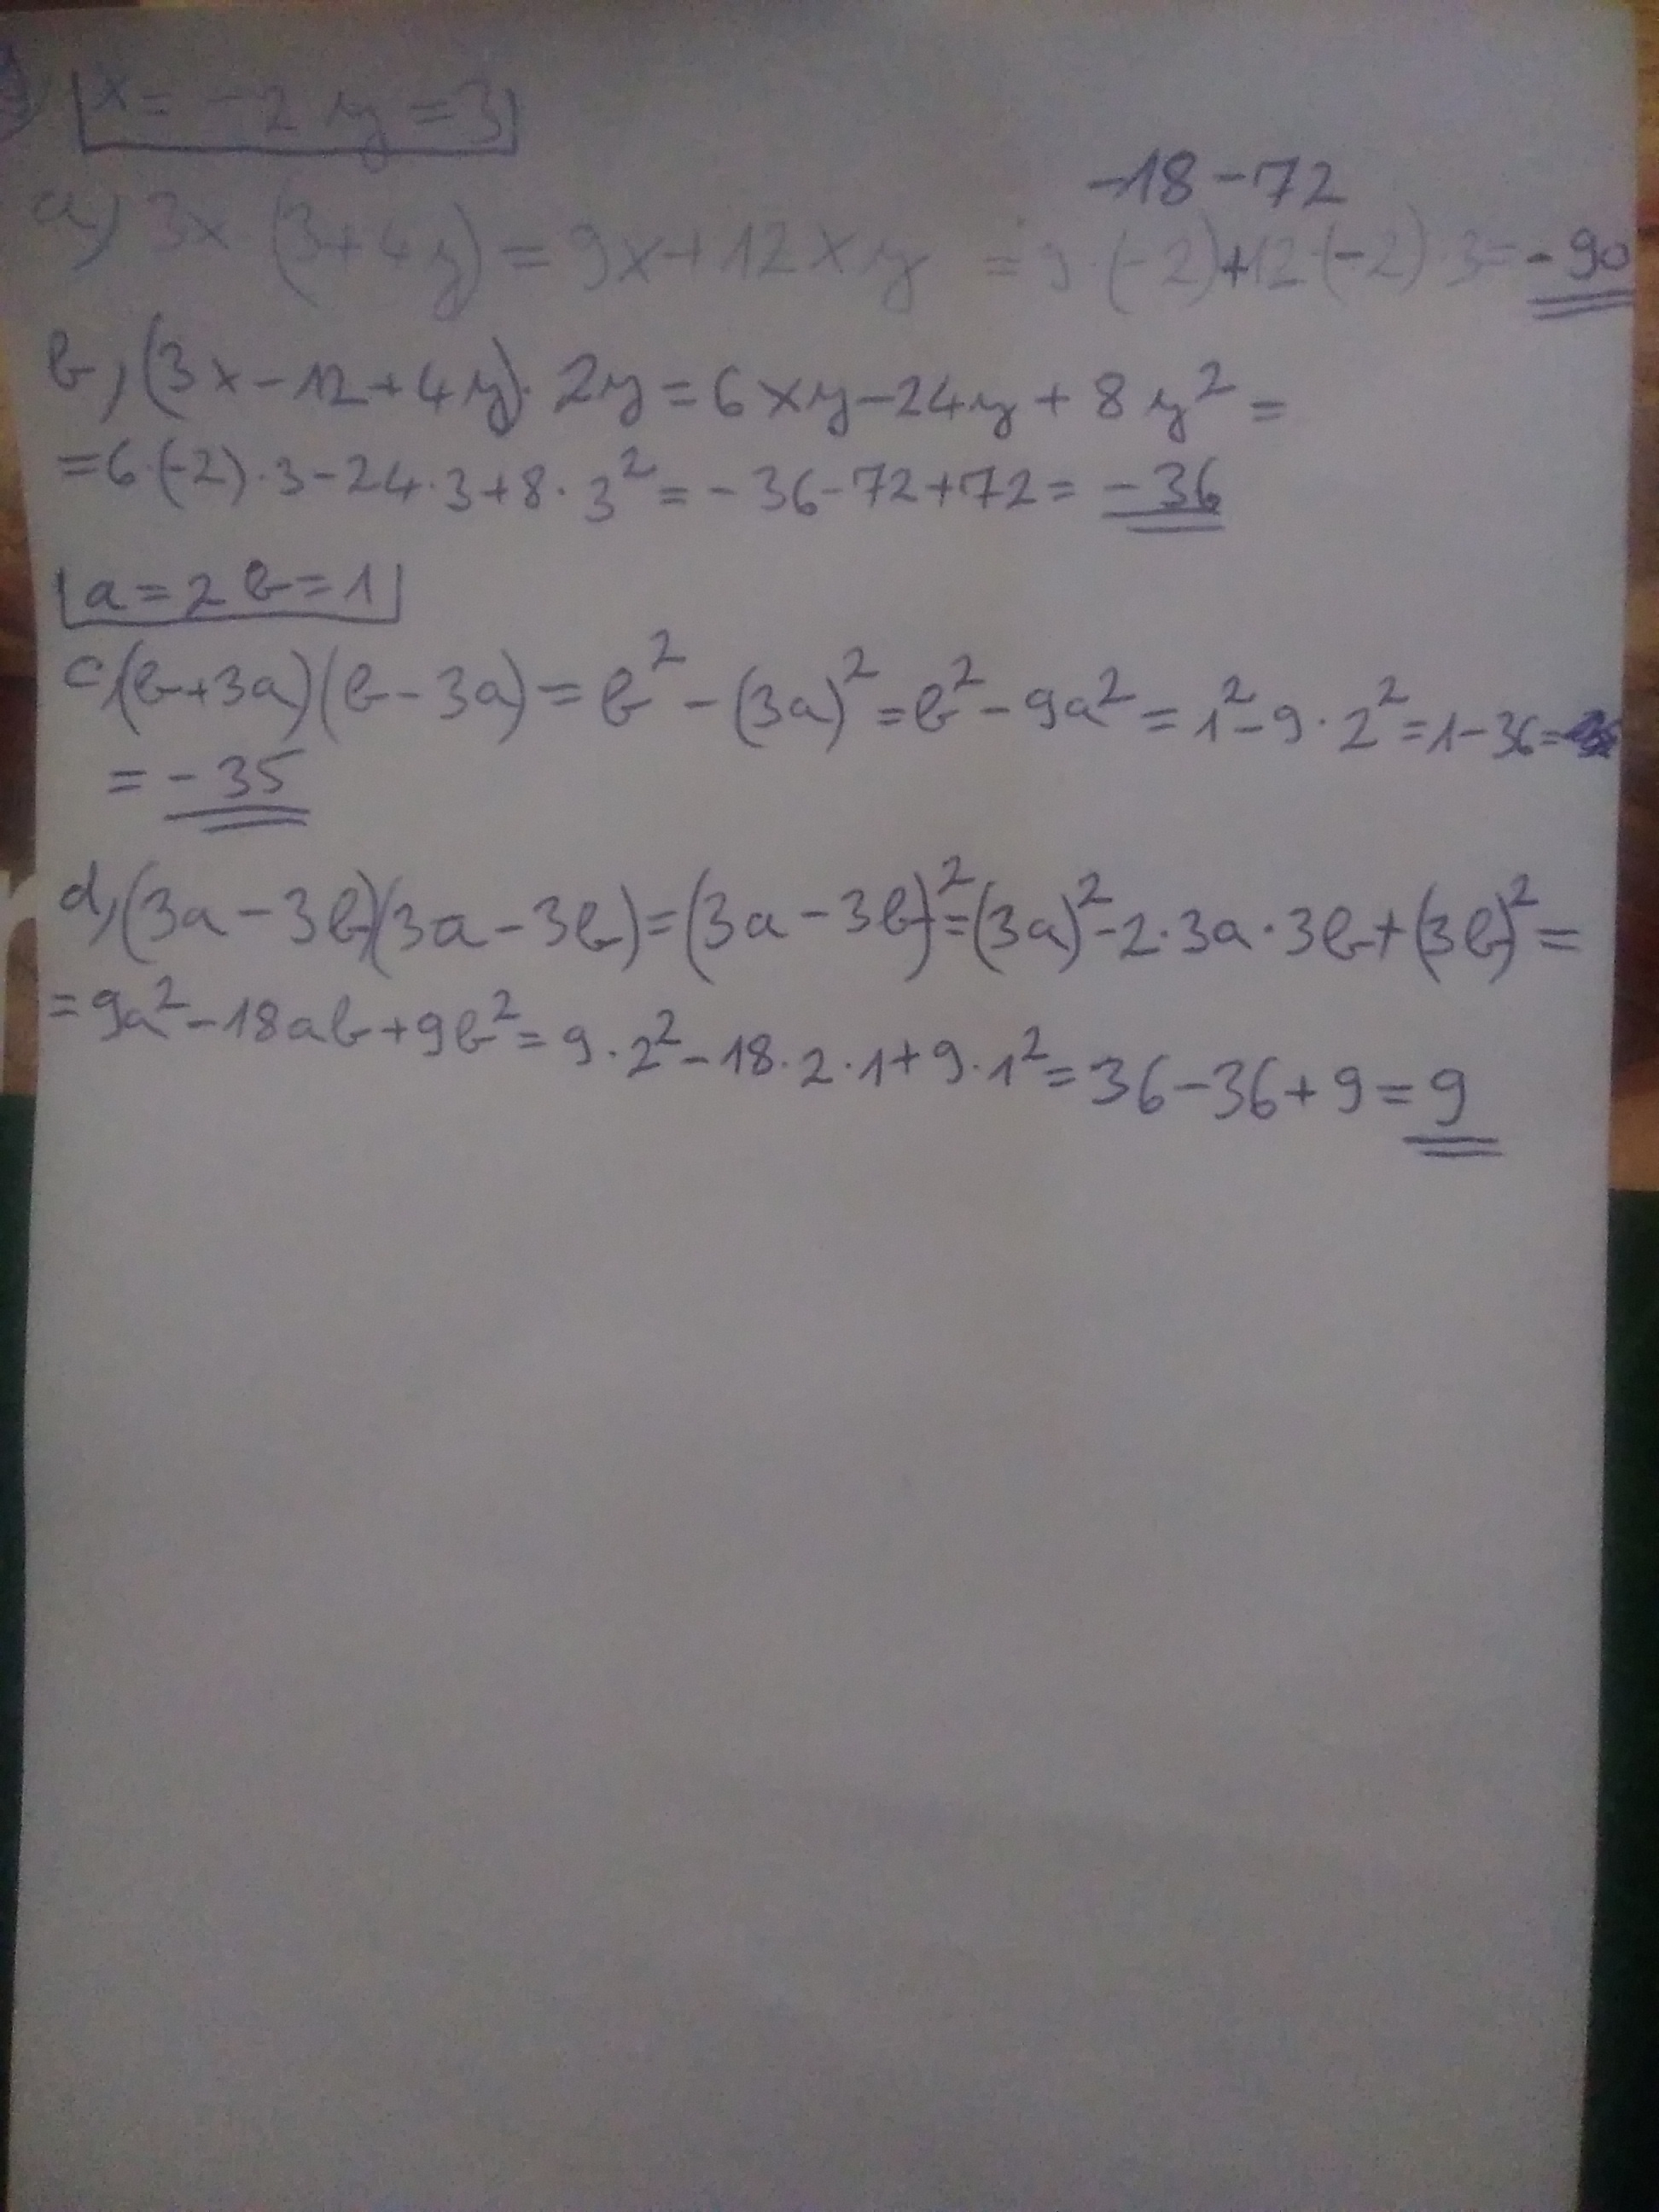 x = -2 y = 3
-18-72
a) 3x (3+4y) = 9x+12xy = 9·(-2)+12·(-2)·3= -90
b, (3x-12+4y)·2y = 6xy-24y+8y² =
=6·(-2)·3-24·3+8·3² = -36-72+72= -36
a=2 b=1
c, (b+3a)(b-3a) = b²-(3a)² = b²-9a² = 1²-9·2² = 1-36=
= -35
d, (3a-3b)(3a-3b) = (3a-3b)² = (3a)²-2·3a·3b+(3b)² =
= 9a²-18ab+9b² = 9·2²-18·2·1+9·1² = 36-36+9 = 9